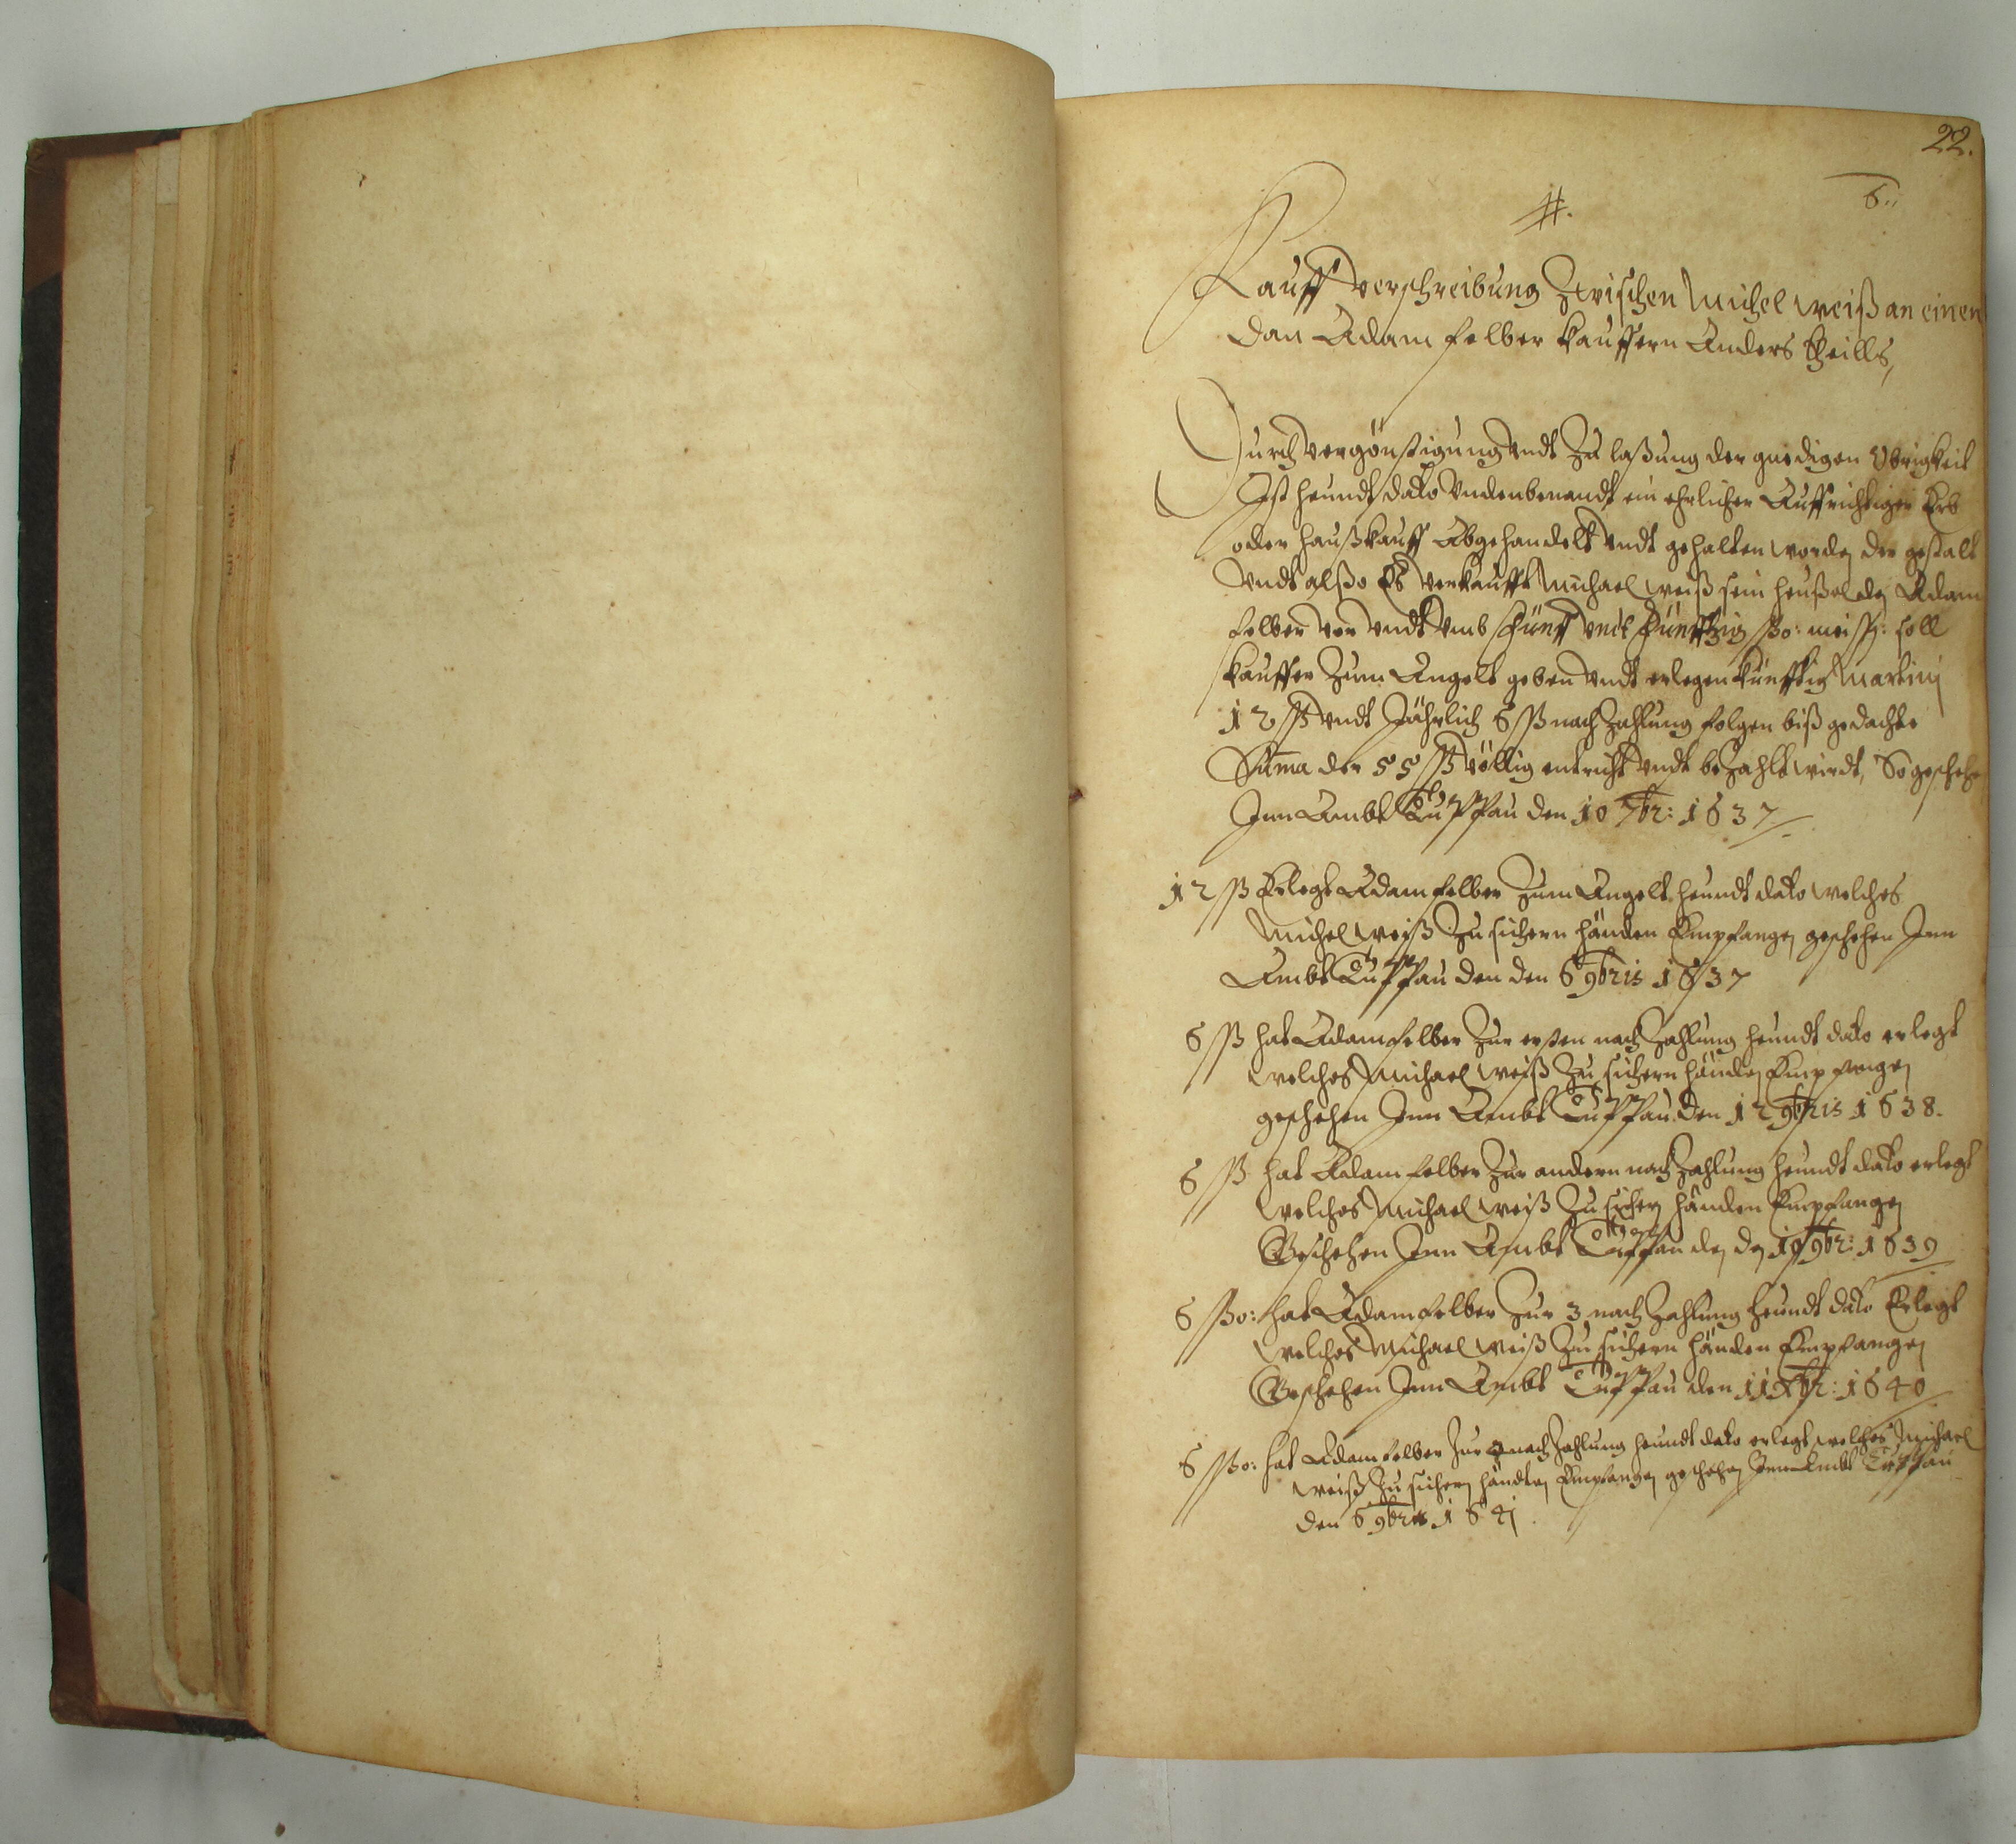 22.
6.
#.
Kauff verschreibung Zwischen Michel weiß an einen
dan Adam felber kauffern Anders theills,
Durch vergönstigung undt Zu laßung der gnedigen Obrigkeit
Ist heundt dato Undenbenandt ein ehrlicher Auffrichtiger Erb
oder haußkauff Abgehandelt undt gehalten worden der gestalt
undt alßo Es verkaufft Michael weiß sein heußel den Adam
felber vor undt umb fünff undt fünffzig ßo: meiß: soll
kauffer Zum Angelt geben undt erlegen künfftig Martinj
12 ß undt Jährlich 6 ß nach Zahlung folgen biß gedachte
Suma der 55 ß völlig entricht undt beZahlt wirdt, So geschehen
Inn Ambt Tuppau den 10 7br: 1637
12 ß Erlegt Adam felber Zum Angelt heundt dato welches
Michel weiß Zu sichern händen Empfangen geschehen Inn
Ambt Tuppau den den 6 9bris 1637
6 ß hat Adam felber Zur ersten nach Zahlung heundt dato erlegt
welches Michael weiß Zu sichern händen Empfangen
geschehen Inn Ambt Tuppau den 12 9bris 1638.
6 ß hat Adam felber Zur andern nach Zahlung heundt dato erlegt
welches Michael weiß Zu sichern händen Empfangen
Geschehen Inn Ambt Tuppau den den 10 9br: 1639
6 ßo: hat Adam felber Zur 3 nach Zahlung heundt dato Erlegt
welches Michael weiß Zu sichern händen Empfangen
Geschehen Inn Ambt Tuppau den 11 Xbr: 1640
6 ßo: hat Adam felber Zur nach Zahlung heundt dato erlegt welches Michael
weiß Zu sichern händten Empfangen geschehen Inn Ambt Tuppau
den 6 9bris 1641